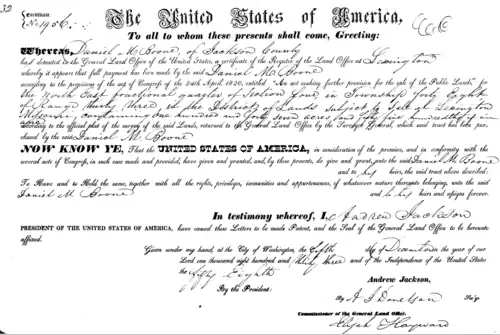 32
Certificate
No. 1956.
The United States of America,
To all to whom these presents shall come, Greeting:
Whereas, Daniel M. Boone, of Jackson County
has deposited in the General Land Office of the United States, a certificate of the Register of the Land Office at Lexington
whereby it appears that full payment has been made by the said Daniel M. Boone
according to the provisions of the act of Congress of the 24th April, 1820, entitled "An act making further provision for the sale of the Public Lands," for
the North East fractional quarter of Section four, in Township forty Eight
of Range thirty three, in the District of Lands subject to Sale at Lexington
Missouri, containing one hundred and forty seven acres and forty five hundredths of an
acre
according to the official plat of the survey of the said Lands, returned to the General Land Office by the Surveyor General, which said tract has been purchased by the said Daniel M. Boone
NOW KNOW YE, That the UNITED STATES OF AMERICA, in consideration of the premises, and in conformity with the
several acts of Congress, in such case made and provided, have given and granted, and, by these presents, do give and grant, unto the said Daniel M. Boone
and to his heirs, the said tract above described:
To Have and to Hold the same, together with all the rights, privileges, immunities and appurtenances, of whatsoever nature thereunto belonging, unto the said
Daniel M. Boone and to his heirs and assigns forever.
In testimony whereof, I, Andrew Jackson
PRESIDENT OF THE UNITED STATES OF AMERICA, have caused these Letters to be made Patent, and the Seal of the General Land Office to be hereunto
affixed.
Given under my hand, at the City of Washington, the fifth day of December in the year of our
Lord one thousand eight hundred and thirty three and of the Independence of the United States
the fifty Eighth
By the President:
Andrew Jackson,
By A J Donelson Sec'y
Commissioner of the General Land Office.
Elijah Hayward